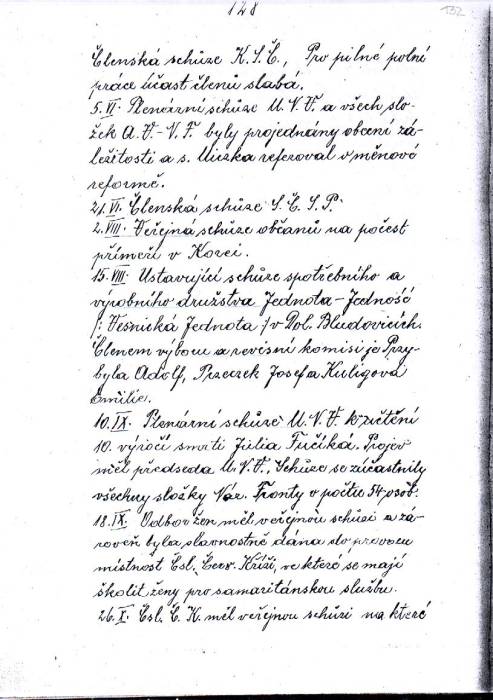 128
132
Členská schůze K.S.Č., Pro pilné polní
práce účast členů slabá.
5.VI. Plenární schůze M.N.V. a všech slo-
žek A.V.-N.F. byly projednány obecní zá-
ležitosti a s. Uiczka referoval v měnové
reformě.
21.VI. Členská schůze S.Č.S.P.
2.VIII. Veřejná schůze občanů na počest
příměří v Korei.
15.VIII. Ustavující schůze spotřebního a
výrobního družstva Jednota-Jedność
/: Vesnická Jednota :/ v Dol. Bludovicích.
Členem výboru a revisní komisi je Przy-
byla Adolf, Pszczek Josef a Kuligová
Emilie.
10.IX. Plenární schůze M.N.V. k uctění
10. výročí smrti Julia Fučíká. Projev
měl předseda M.N.V., Schůze se zúčastnily
všechny složky Nár. Fronty o počtu 54 osob.
18.IX. Odbor žen měl veřejnou schůzi a zá-
roveň byla slavnostně dána do provozu
místnost Čsl. Červ. Kříži, ve které se mají
školit ženy pro samaritánskou službu.
26.X. Čsl. Č.K. měl veřejnou schůzi na které